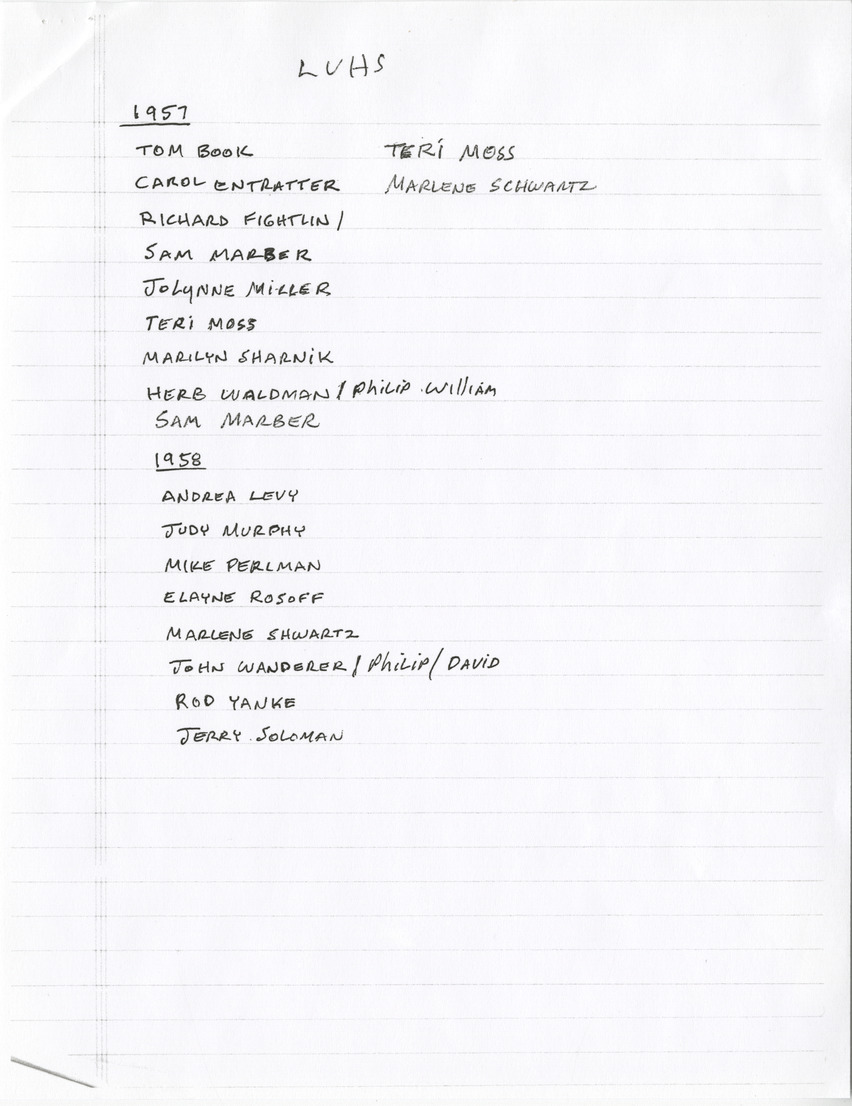 LVHS
1957
TOM BOOK TERI MOSS
CAROL ENTRATTER MARLENE SCHWARTZ
RICHARD FIGHTLIN /
SAM MARBER
JOLYNNE MILLER
TERI MOSS
MARILYN SHARNIK
HERB WALDMAN / PHILIP WILLIAM
SAM MARBER
1958
ANDREA LEVY
JUDY MURPHY
MIKE PERLMAN
ELAYNE ROSOFF
MARLENE SHWARTZ
JOHN WANDERER / PHILIP / DAVID
ROD YANKE
JERRY SOLOMAN